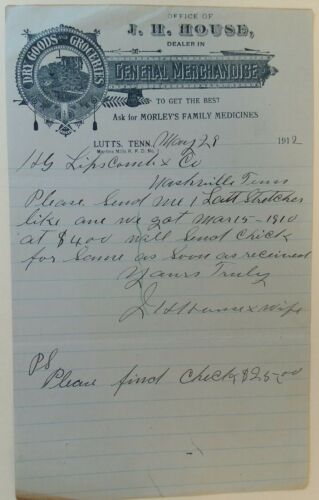 OFFICE OF
J. H. HOUSE,
DEALER IN
DRY GOODS AND GROCERIES
GENERAL MERCHANDISE
TO GET THE BEST
Ask for MORLEY'S FAMILY MEDICINES
LUTTS, TENN. May 28 1912
Martins Mills R. F. D. No.
H G Lipscomb & Co
Nashville Tenn
Please Send me 1 Stretcher
like one we got Mar 15-1910
at $4.00 will Send Check
for Same as Soon as received
Yours Truly
J H House & Wife
PS
Please find Check $25.00